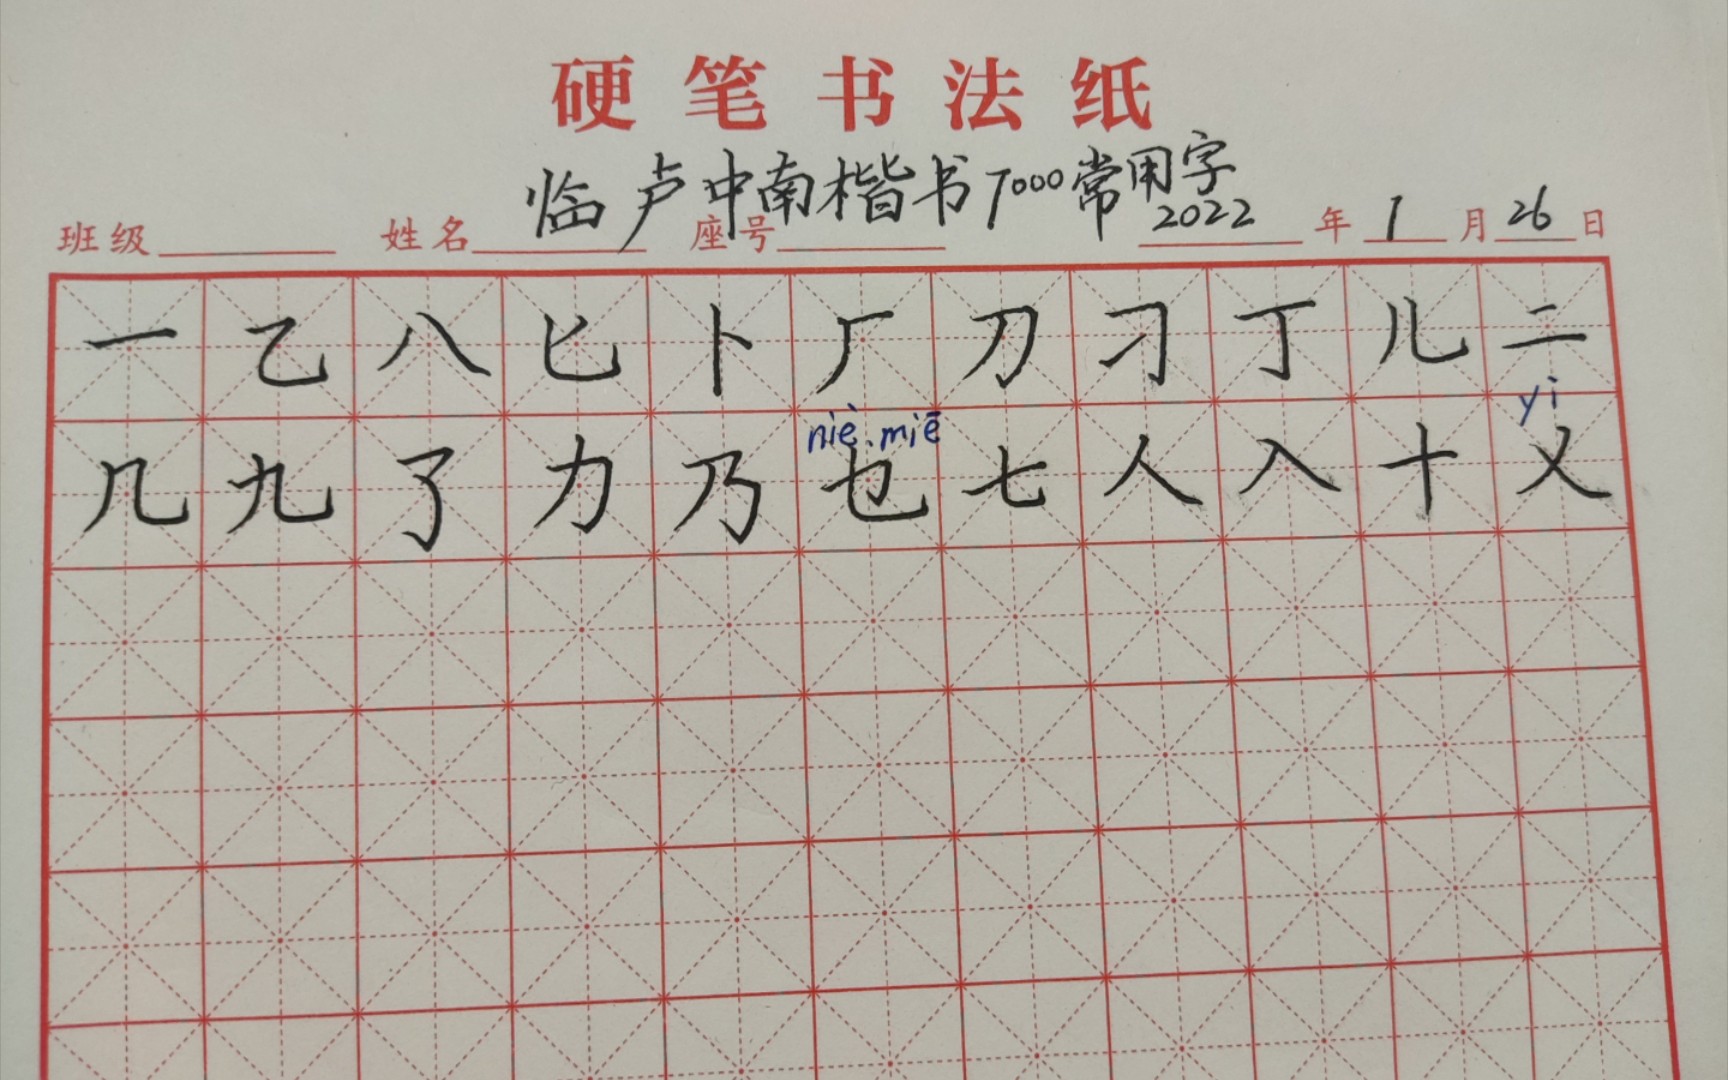 硬笔书法纸
临卢中南楷书7000常用字
班级 姓名 座号 2022 年 1 月 26 日
一乙八匕卜厂刀刁丁儿二
niè.miē yì
几九了力乃乜七人入十乂